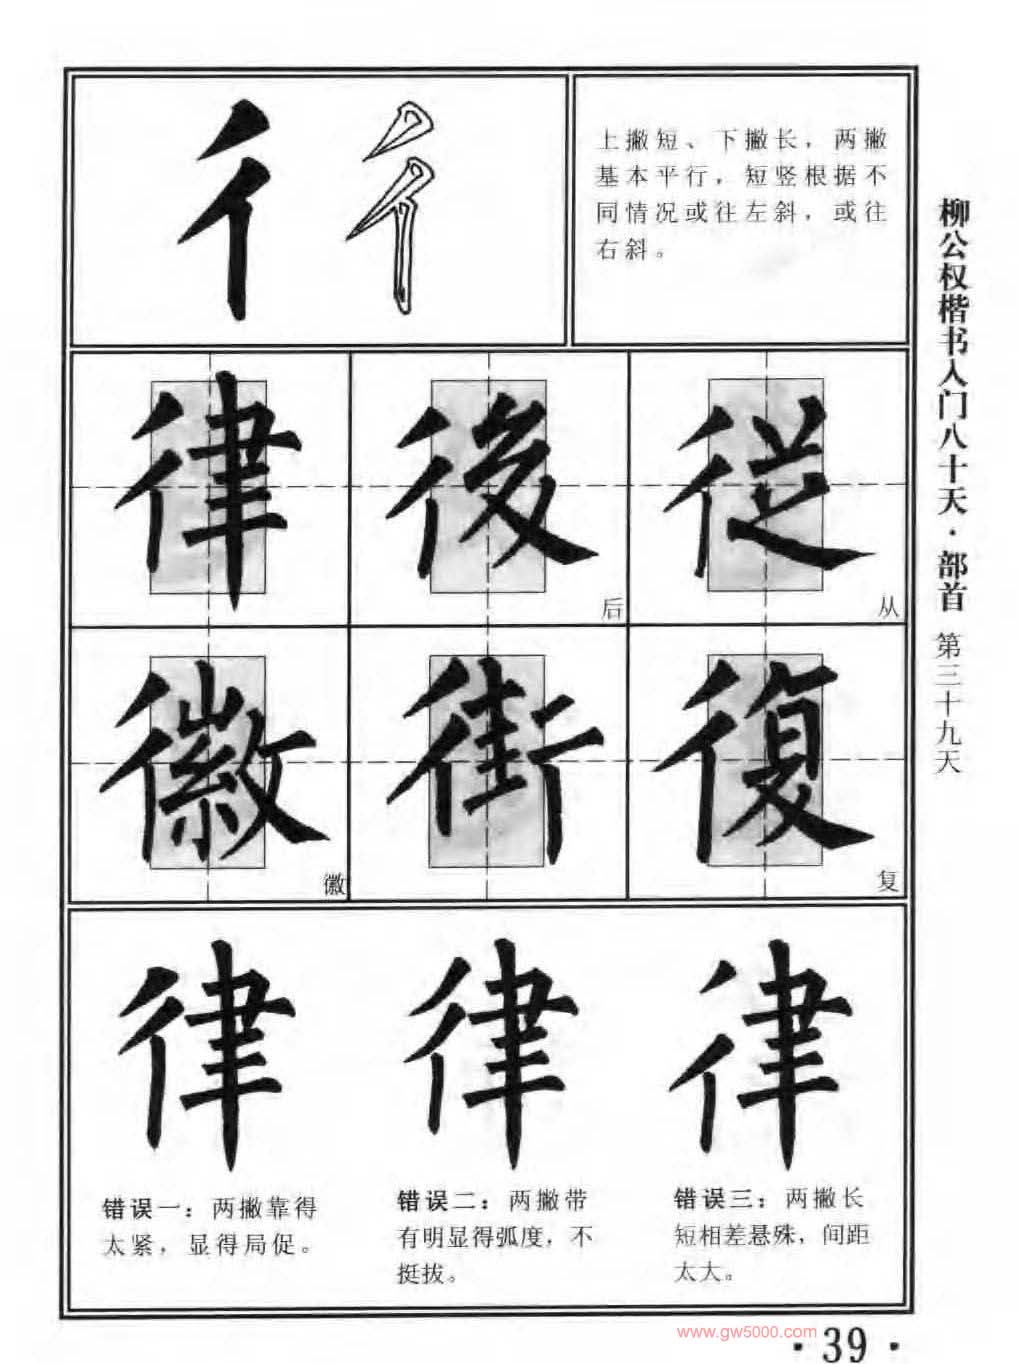 彳 彳
上撇短、下撇长，两撇
基本平行，短竖根据不
同情况或往左斜，或往
右斜。
律 後 従
后 从
徽 街 復
徽 复
律 律 律
错误一：两撇靠得
太紧，显得局促。
错误二：两撇带
有明显得弧度，不
挺拔。
错误三：两撇长
短相差悬殊，间距
太大。
柳公权楷书入门八十天·部首 第三十九天
www.gw5000.com
·39·